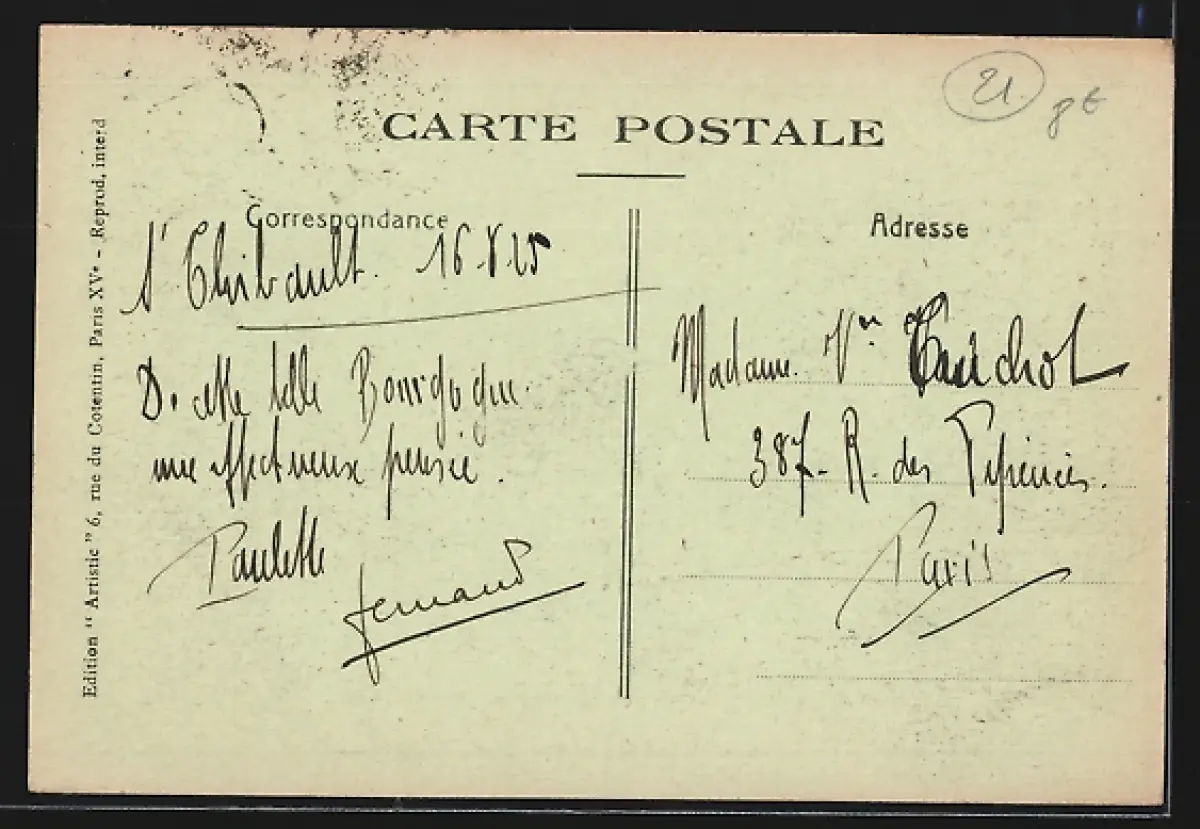 CARTE POSTALE
21.
8€
Correspondance
St Thibault. 16-8-25
De cette belle Bourgogne
une affectueuse pensée.
Paulette
Fernand
Adresse
Madame Vve
387 - R. des Pyrénées.
Paris
Edition " Artistic " 6, rue du Cotentin, Paris XVe - Reprod, interd